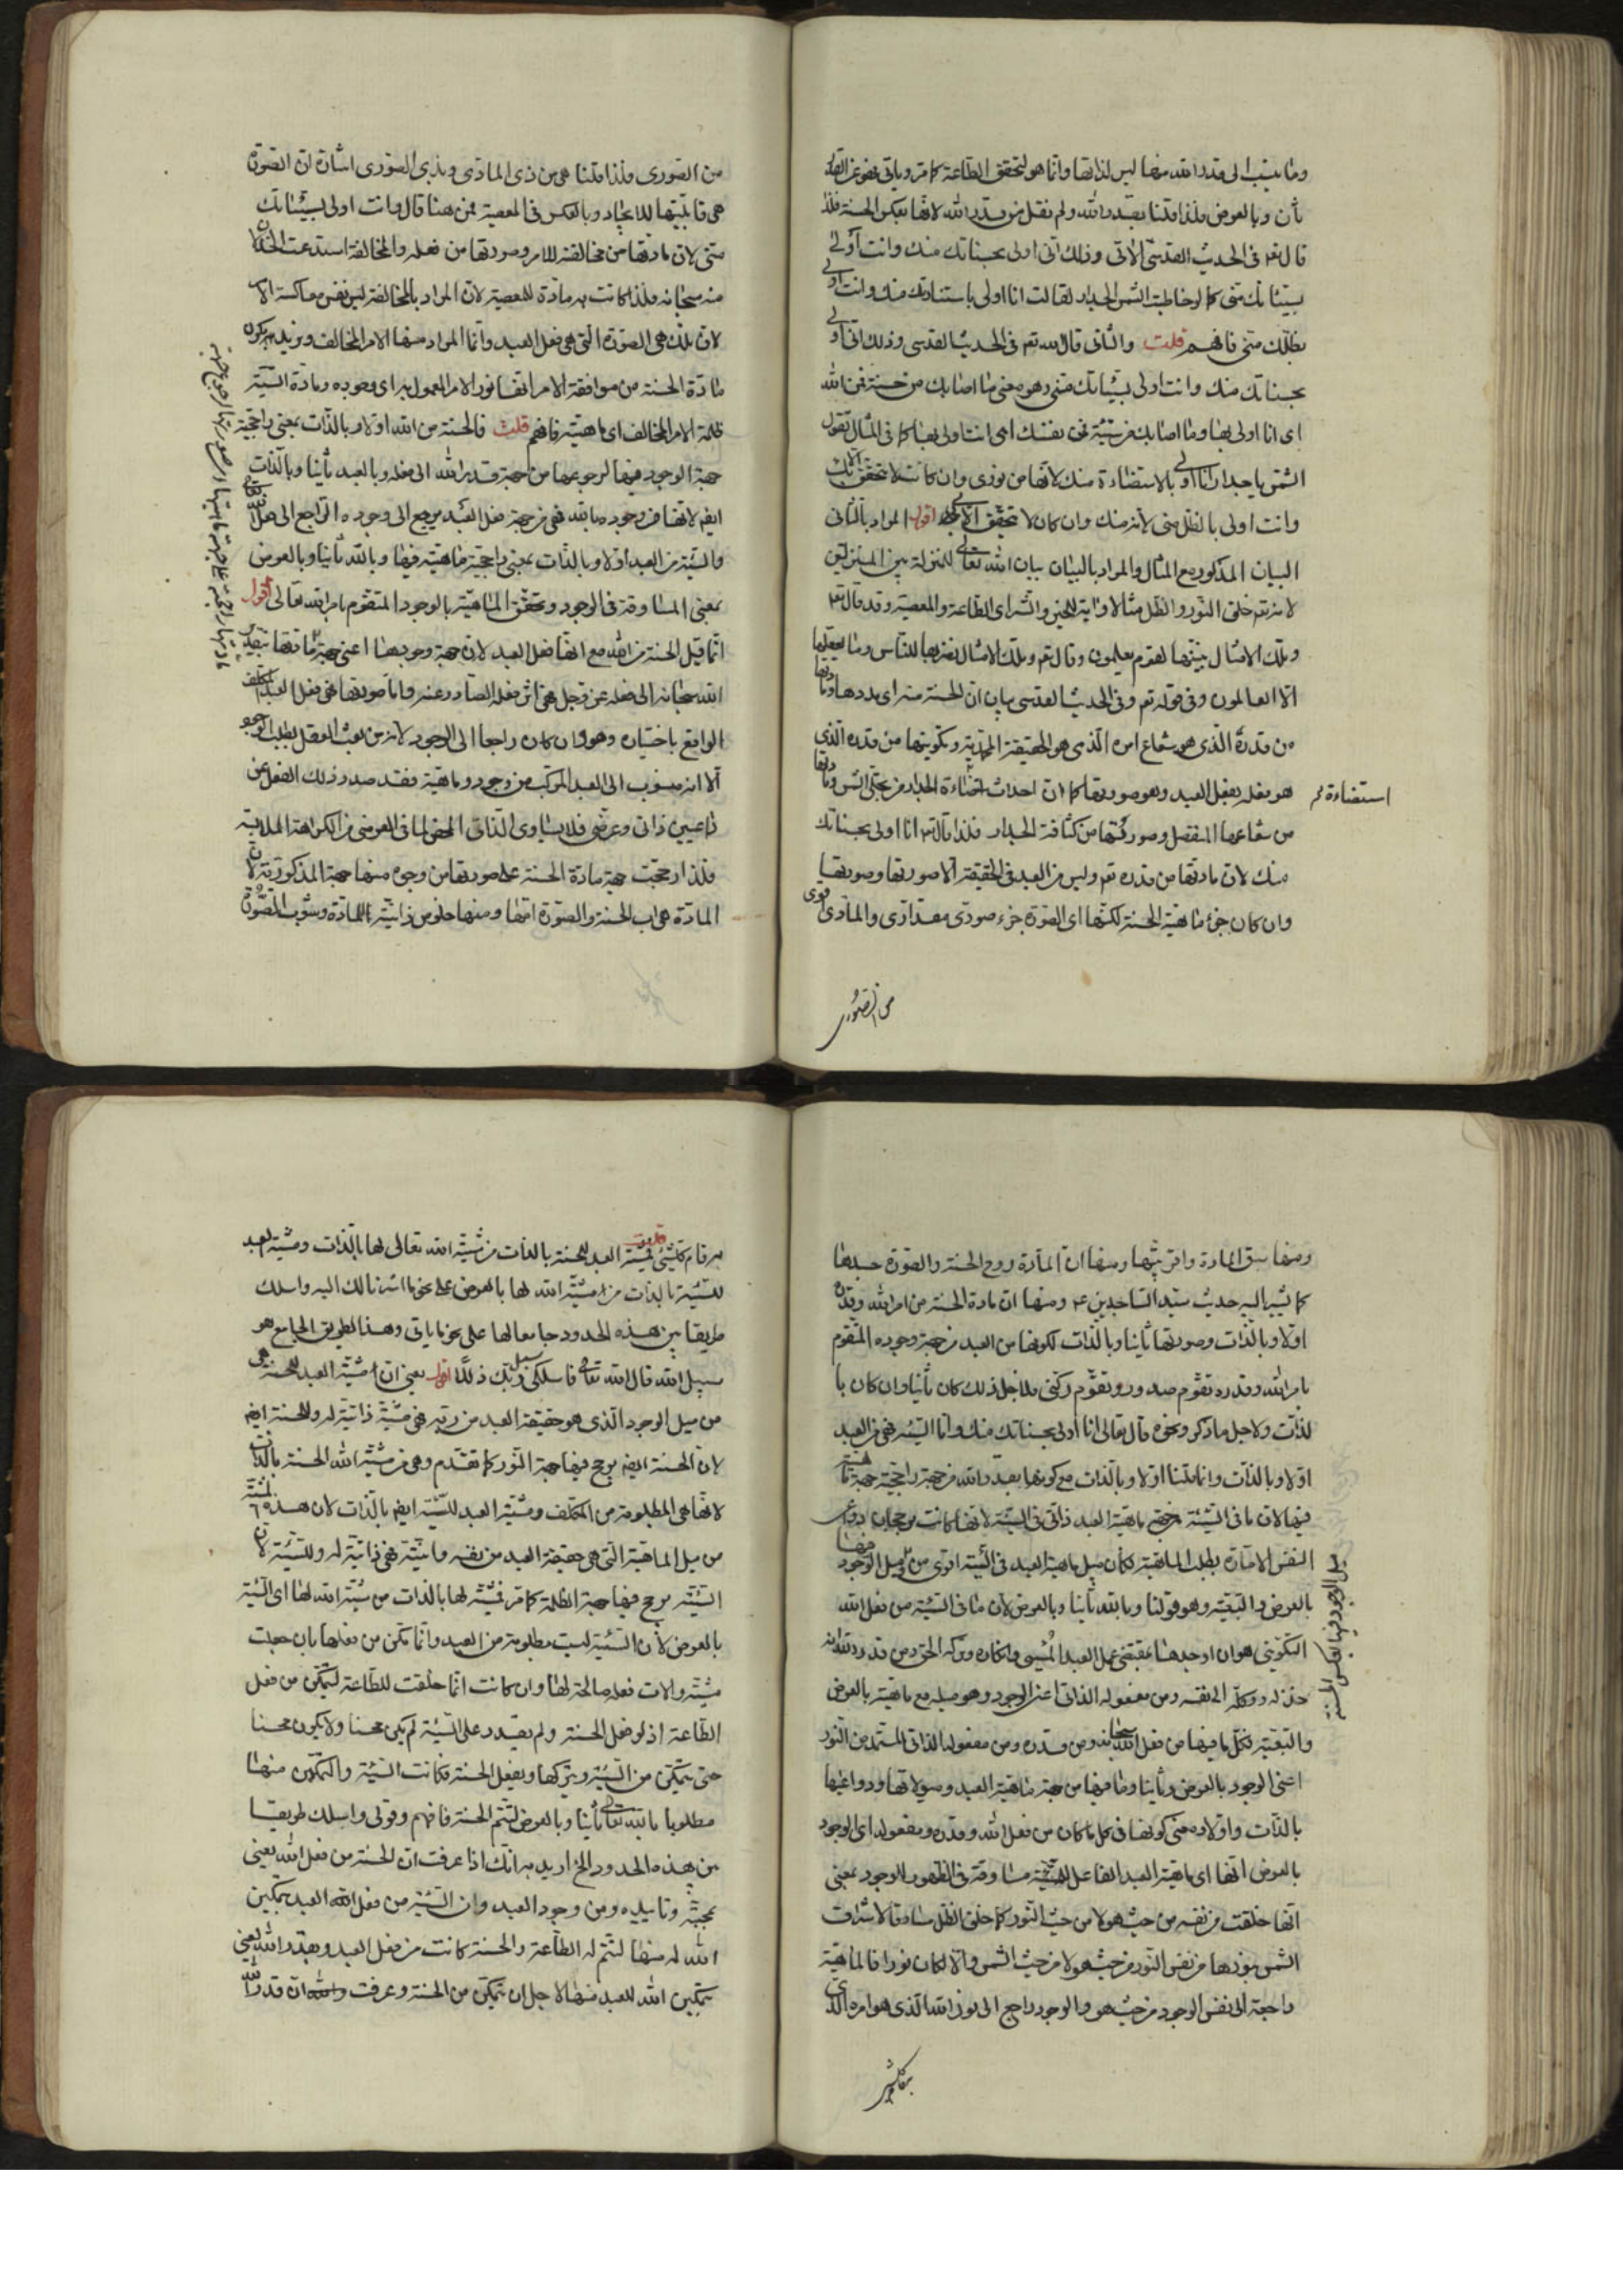 وما ينسب الى قدر الله منها ليس لذاتها وانما هو لتحقق الطاعة كما مر وياتي فهو عن القدر
ثان وبالعرض فلذا قلنا بقدر الله ولم نقل من قدر الله لانها بعكس الحسنة فلذا
قال تعالى في الحديث القدسي الاتي وذلك اني اولى بحسناتك منك وانت اولى
بسيئاتك مني كما لو خاطبت الشمس الجدار لقالت انا اولى باستنارتك منك وانت اولى
بظلك مني فافهم قلت والثاني قال الله تعـ في الحديث القدسي وذلك اني اولى
بحسناتك منك وانت اولى بسيئاتك مني وهو معنى ما اصابك من حسنة فمن الله
اي انا اولى بها وما اصابك من سيئة فمن نفسك اي انت اولى بها كما في المثال تقول
الشمس يا جدار انا اولى بالاستضاءة منك لانها من نوري وان كانت لا تتحقق الا بك
وانت اولى بالظل مني لانه منك وان كان لا يتحقق الا بي اقول المراد بالثاني
البيان المذكور مع المثال والمراد بالبيان بيان الله تعالى للمنزلة بين المنزلتين
لانه تعـ خلق النور والظل مثالا واية للخير والشر اي الطاعة والمعصية وقد قال تعـ
وتلك الامثال نبينها لقوم يعلمون وقال تعـ وتلك الامثال نضربها للناس وما يعقلها
الا العالمون وفي قوله تعـ وفي الحديث القدسي بيان ان الحسنة منه اي مددها ومادتها
من قدره الذي هو شعاع امره الذي هو الحقيقة المحمدية وتكوينها من قدره الذي
هو بفعله بفعل العبد وهو صورتها كما ان احداث استضاءة الجدار من تجلي الشمس ومادتها
استضاءة
من شعاعها المنفصل وصورتها من كثافة الجدار فلذا قال تعـ انا اولى بحسناتك
منك لان مادتها من قدره تعـ وليس من العبد في الحقيقة الا صورتها وصورتها
وان كان جزء ماهية الحسنة لكنها اي الصورة جزء صوري مقداري والمادي اقوى
من الصوري
من الصوري ولذا قلنا هي من ذي المادي وبذي الصوري اشارة لان الصورة
هي قابليتها للايجاد وبالعكس في المعصية فمن هنا قال وانت اولى بسيئاتك
مني لان مادتها من مخالفته للامر وصورتها من فعله والمخالفة استدعت الخذلان
منه سبحانه ولذا كانت به مادة للمعصية لان المراد بالمخالفة ليس نفس معاكسة الامر
لان تلك هي الصورة التي هي فعل العبد وانما المراد منها الامر المخالف ونريد بكون
مادة الحسنة من موافقة الامر انها نور الامر المعمول به اي وجوده ومادة السيئة
ظلمة الامر المخالف اي ماهيته فافهم قلت فالحسنة من الله اولا وبالذات بمعنى راجحية
جهة الوجود فيها لرجوعها من جهة قدر الله الى فعله وبالعبد ثانيا وبالذات
ايضا لانها في وجودها بالله فهي من جهة فعل العبد يرجع الى وجوده الراجع الى فعل الله
والسيئة من العبد اولا وبالذات بمعنى راجحية ماهيته فيها وبالله ثانيا وبالعرض
بمعنى المساوقة في الوجود وتحقق الماهية بالوجود المتقوم بامر الله تعالى اقول
انما قيل الحسنة من الله مع انها فعل العبد لان جهة وجودها اعني جهة مادتها بقدر
الله سبحانه الى فعله عز وجل هي اثر فعله الصادر عنه واما صورتها فهي فعل العبد المكلف
الواقع باختياره وهو وان كان راجعا الى الوجود لانه من بعث العقل بطلب الوجود
الا انه منسوب الى العبد المركب من وجود وماهية فقد صدر ذلك الفعل عن
داعيين ذاتي وعرضي فلا يساوي الذاتي المحض لما في العرضي من الكراهة الملايمة
فلذا رجحت جهة مادة الحسنة على صورتها من وجوه منها جهة المذكورية لان
المادة هي اب الحسنة والصورة امها ومنها خلوص ذاتية المادة وشوب الصورة
ومنها سبق المادة واقربيتها ومنها ان المادة روح الحسنة والصورة جسدها
كما يشير اليه حديث سيد الساجدين ع ومنها ان مادة الحسنة من امر الله وقدره
اولا وبالذات وصورتها ثانيا وبالذات لكونها من العبد من جهة وجوده المتقوم
بامر الله وقدره تقوم صدور وتقوم ركني فلاجل ذلك كان ثانيا وان كان با
لذات ولاجل ما ذكر ونحوه قال تعالى انا اولى بحسناتك منك واما السيئة فهي من العبد
اولا وبالذات وانما قلنا اولا وبالذات مع كونها بقدر الله من جهة راجحية جهة ماهيته
فيها لان ما في السيئة من جهة ماهية العبد ذاتي في السيئة لانها كانت برجحان دواعي
النفس الامارة بطلب الماهية فكان ميل ماهية العبد في السيئة اقوى من ميل الوجود فيها
بالعرض والتبعية وهو قولنا وبالله ثانيا وبالعرض لان ما في السيئة من فعل الله
التكويني هو ان اوجدها بمقتضى عمل العبد المسيء وانكاره وتركه الحق ومن قدر الله انه
خذله ووكله الى نفسه ومن مفعوله الذاتي اعني الوجود وهو ميله مع ماهيته بالعرض
والتبعية فكل ما فيها من فعل الله سبحانه ومن قدره ومن مفعوله الذاتي المستمد من النور
اعني الوجود بالعرض وثانيا وما فيها من جهة ماهية العبد وميولاتها ودواعيها
بالذات واولا ومعنى كونها في كل ما كان من فعل الله وقدره ومفعوله اي الوجود
بالعرض انها اي ماهية العبد الفاعل للسيئة مساوقة في الظهور للوجود بمعنى
انها خلقت من نفسه من حيث هو لا من حيث النور كما خلق الظل مساوقا لاشراق
الشمس بنورها من نفس النور من حيث هو لا من حيث الشمس والا لكان نورا فالماهية
راجعة الى نفس الوجود من حيث هو والوجود راجع الى نور الله الذي هو امره الذي
به قام كل شيء قلت فمشية العبد للحسنة بالذات من مشية الله تعالى لها بالذات ومشية العبد
للسيئة بالذات من مشية الله لها بالعرض على نحو ما اشرنا لك اليه واسلك
طريقا بين هذه الحدود جامعا لها على نحو ما ياتي وهذا الطريق الجامع هو
سبيل الله قال الله تعالى فاسلكي سبل ربك ذللا اقول يعني ان مشية العبد للحسنة هي
من ميل الوجود الذي هو حقيقة العبد من ربه فهي مشية ذاتية له وللحسنة ايضا
لان الحسنة ايضا يرجح فيها جهة النور كما تقدم وهي من مشية الله الحسنة بالذات
لانها هي المطلوبة من المكلف ومشية العبد للسيئة ايضا بالذات لان هذه المشية
من ميل الماهية التي هي حقيقة العبد من نفسه وانيته فهي ذاتية له وللسيئة لان
السيئة يرجح فيها جهة الظلمة كما مر فمشيته لها بالذات من مشية الله لها اي السيئة
بالعرض لان السيئة ليست مطلوبة من العبد وانما تمكن من فعلها بان جعلت
مشيته والات فعله صالحة لها وان كانت انما خلقت للطاعة ليتمكن من فعل
الطاعة اذ لو فعل الحسنة ولم يقدر على السيئة لم يكن محسنا ولا يكون محسنا
حتى يتمكن من السيئة ويتركها ويفعل الحسنة فكانت السيئة والتمكين منها
مطلوبا بالله تعالى ثانيا وبالعرض لتتم الحسنة فافهم وقولي واسلك طريقا
بين هذه الحدود الخ اريد به انك اذا عرفت ان الحسنة من فعل الله يعني
بمحبته وتاييده ومن وجود العبد وان السيئة من فعل العبد بتمكين
الله له منها لتتم له الطاعة والحسنة كانت من فعل العبد وبقدر الله يعني
بتمكين الله للعبد منها لاجل ان يتمكن من الحسنة وعرفت ان قدر الله